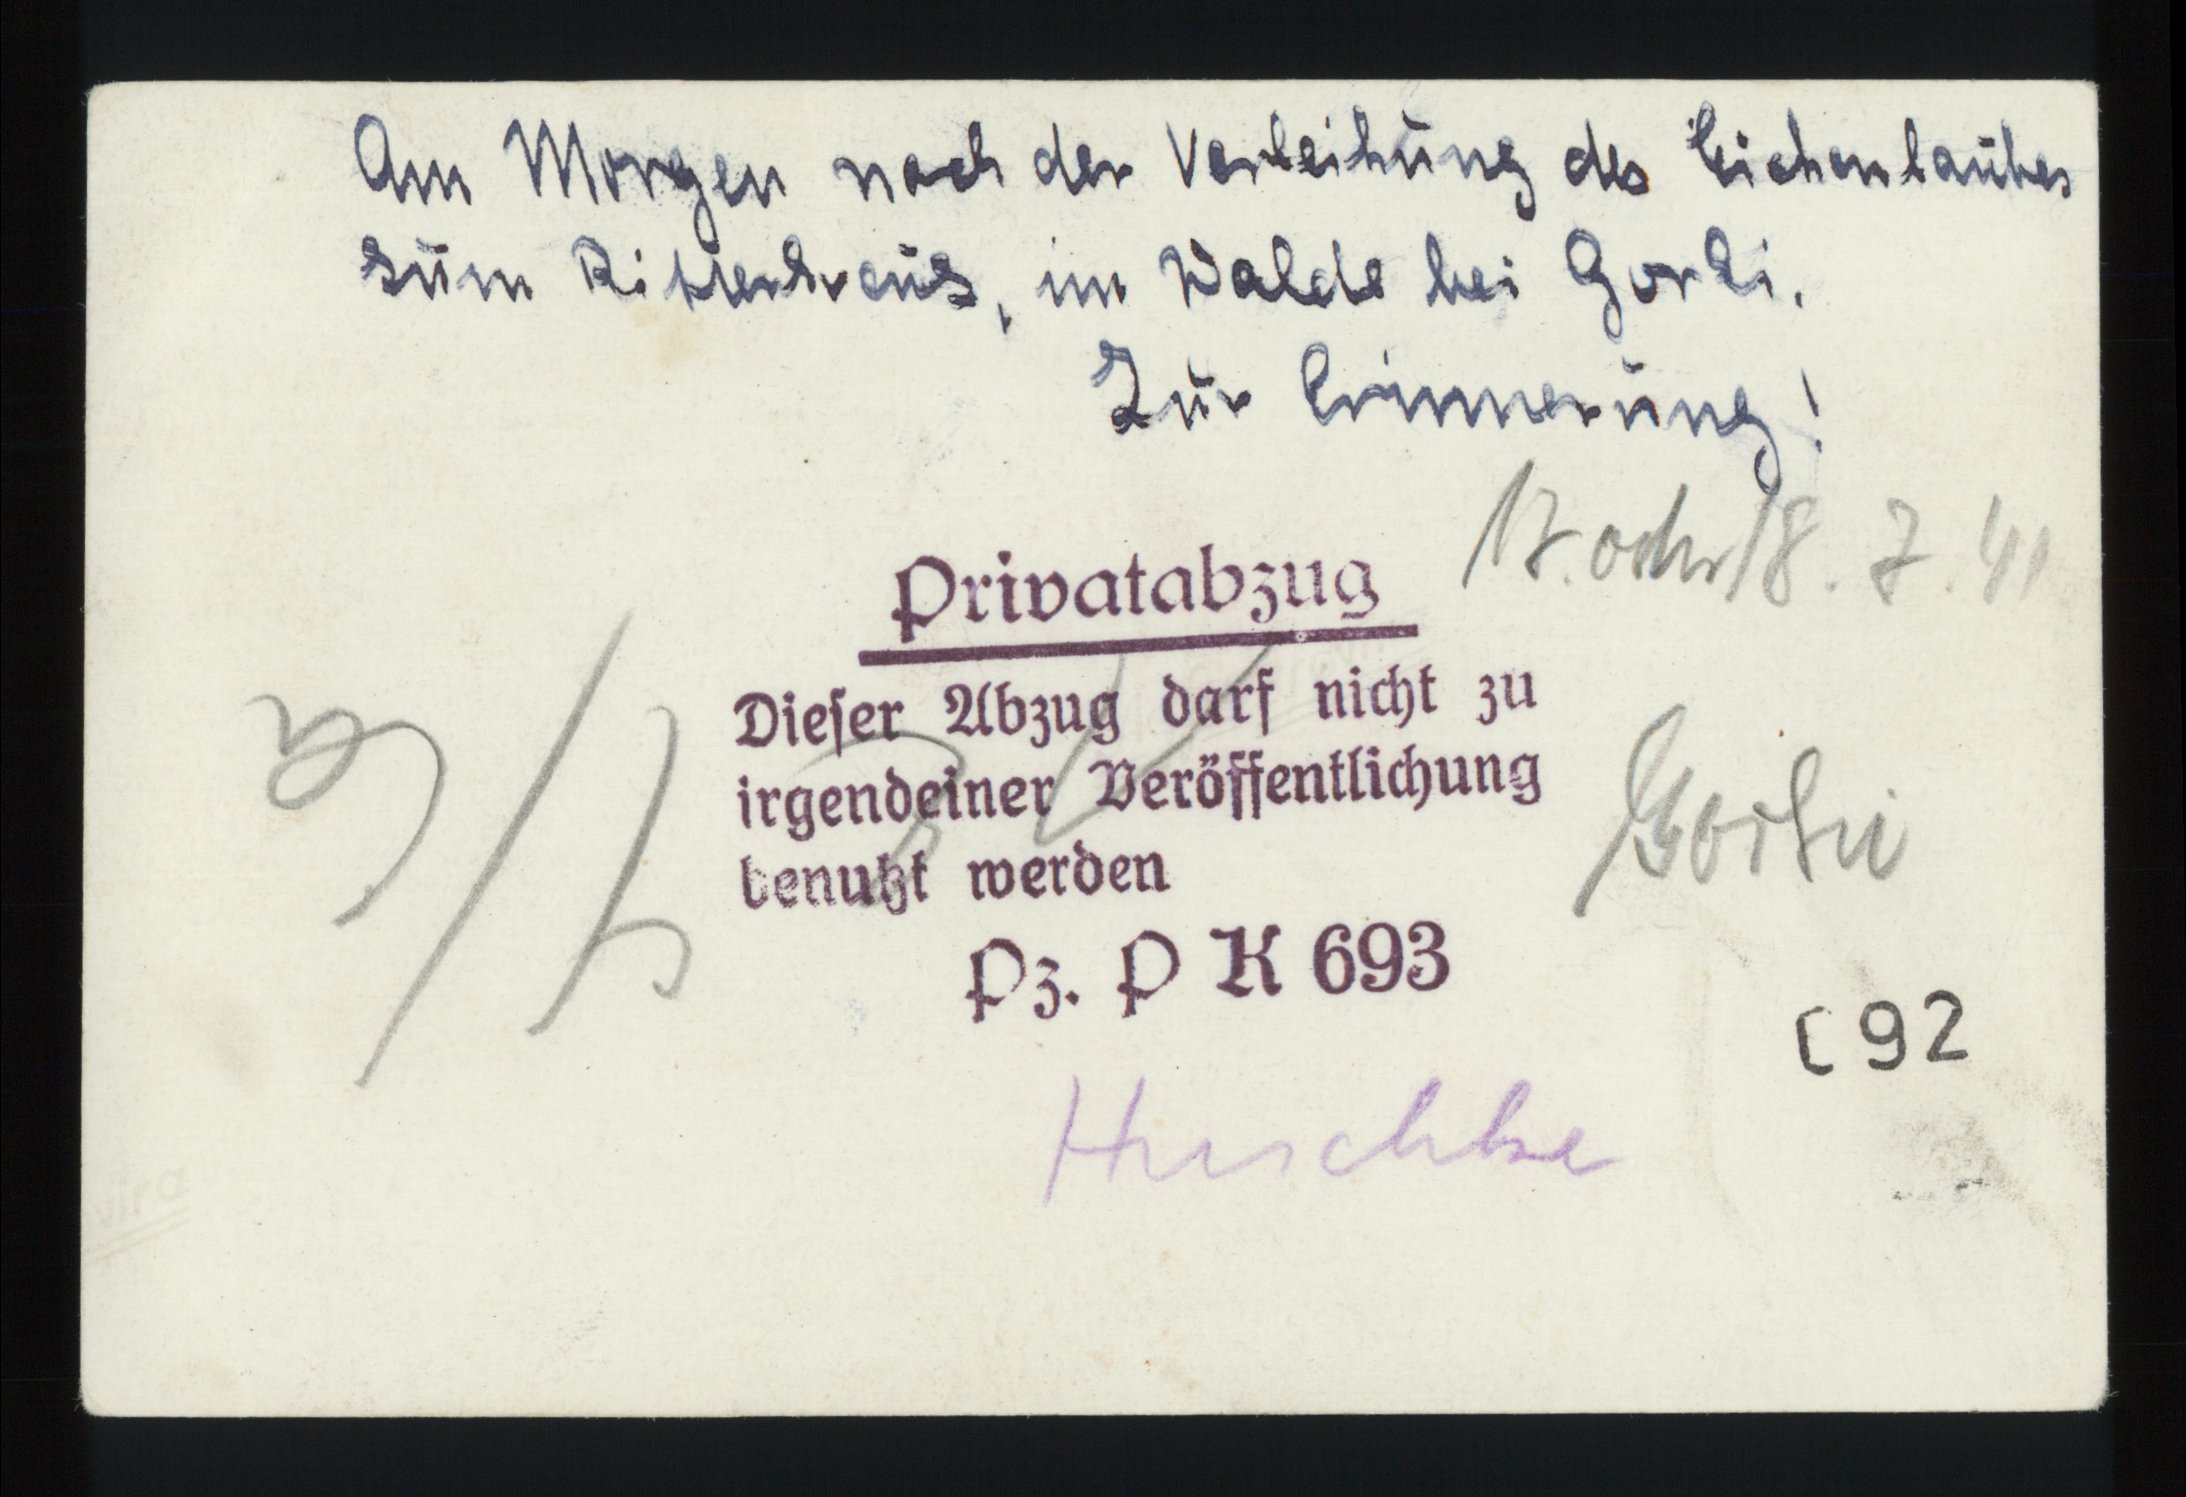 Am Morgen nach der Verleihung des Eichenlaubes
zum Ritterkreuz, im Walde bei Gorki.
Zur Erinnerung!
17. oder 18. 7. 41
Privatabzug
Dieser Abzug darf nicht zu
irgendeiner Veröffentlichung
benutzt werden
Gorki
Pz. P K 693
C 92
Huschke